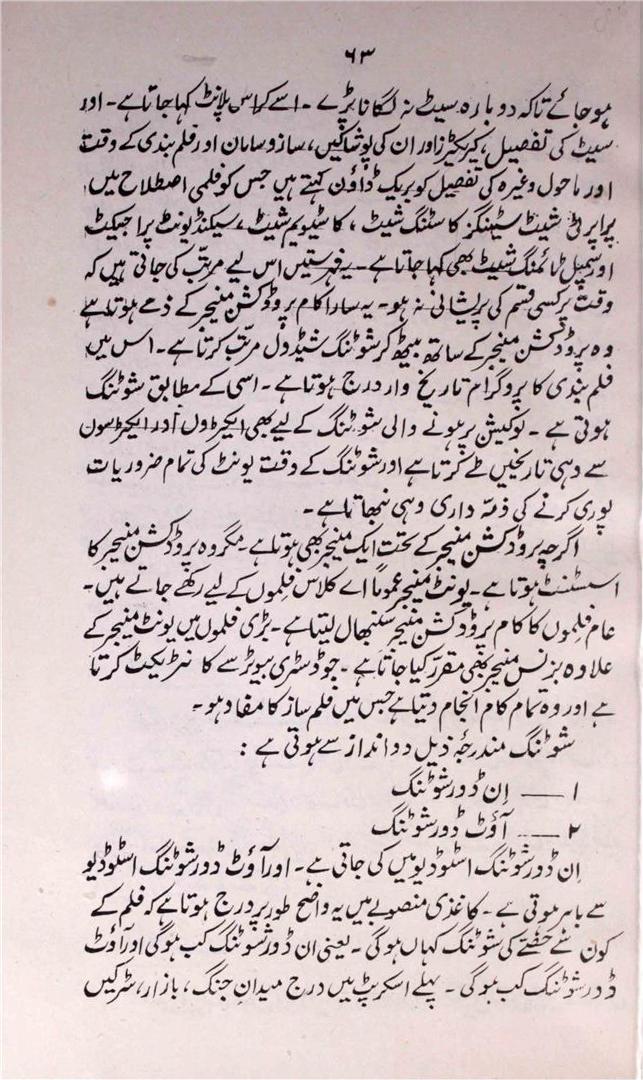 ۶۳
ہو جائے تاکہ دوبارہ سیٹ نہ لگانا پڑے ۔ اسے کراس پلانٹ کہا جاتا ہے ۔ اور
سیٹ کی تفصیل، کیریکٹرز اور ان کی پوشاکیں، ساز و سامان اور فلم بندی کے وقت
اور ماحول وغیرہ کی تفصیل کو بریک ڈاؤن کہتے ہیں جس کو فلمی اصطلاح میں
پراپرٹی شیٹ سیٹنگز کاسٹنگ شیٹ ، کاسٹیوم شیٹ ، سیکنڈ یونٹ پراجیکٹ
اور سمپل ٹائمنگ شیٹ بھی کہا جاتا ہے ۔ یہ فہرستیں اس لیے مرتب کی جاتی ہیں کہ
وقت پر کسی قسم کی پریشانی نہ ہو ۔ یہ سارا کام پروڈکشن منیجر کے ذمے ہوتا ہے
وہ پروڈکشن منیجر کے ساتھ بیٹھ کر شوٹنگ شیڈول مرتب کرتا ہے ۔ اس میں
فلم بندی کا پروگرام تاریخ وار درج ہوتا ہے ۔ اسی کے مطابق شوٹنگ
ہوتی ہے ۔ لوکیشن پر ہونے والی شوٹنگ کے لیے بھی ایکٹروں اور ایکٹرسوں
سے وہی تاریخیں طے کرتا ہے اور شوٹنگ کے وقت یونٹ کی تمام ضروریات
پوری کرنے کی ذمّہ داری وہی نبھاتا ہے ۔
اگرچہ پروڈکشن منیجر کے تحت ایک منیجر بھی ہوتا ہے ۔ مگر وہ پروڈکشن منیجر کا
اسسٹنٹ ہوتا ہے ۔ یونٹ منیجر عموماً اے کلاس فلموں کے لیے رکھے جاتے ہیں ۔
عام فلموں کا کام پروڈکشن منیجر سنبھال لیتا ہے ۔ بڑی فلموں میں یونٹ منیجر کے
علاوہ بزنس منیجر بھی مقرر کیا جاتا ہے ۔ جو ڈسٹری بیوٹرز سے کانٹریکٹ کرتا
ہے اور وہ تمام کام انجام دیتا ہے جس میں فلم ساز کا مفاد ہو ۔
شوٹنگ مندرجۂ ذیل دو انداز سے ہوتی ہے :
۱ — اِن ڈور شوٹنگ
۲ — آؤٹ ڈور شوٹنگ
اِن ڈور شوٹنگ اسٹوڈیو میں کی جاتی ہے ۔ اور آؤٹ ڈور شوٹنگ اسٹوڈیو
سے باہر ہوتی ہے ۔ کاغذی منصوبے میں یہ واضح طور پر درج ہوتا ہے کہ فلم کے
کون سے حصّے کی شوٹنگ کہاں ہوگی ۔ یعنی ان ڈور شوٹنگ کب ہوگی اور آؤٹ
ڈور شوٹنگ کب ہوگی ۔ پہلے اسکرپٹ میں درج میدانِ جنگ ، بازار ، سڑکیں